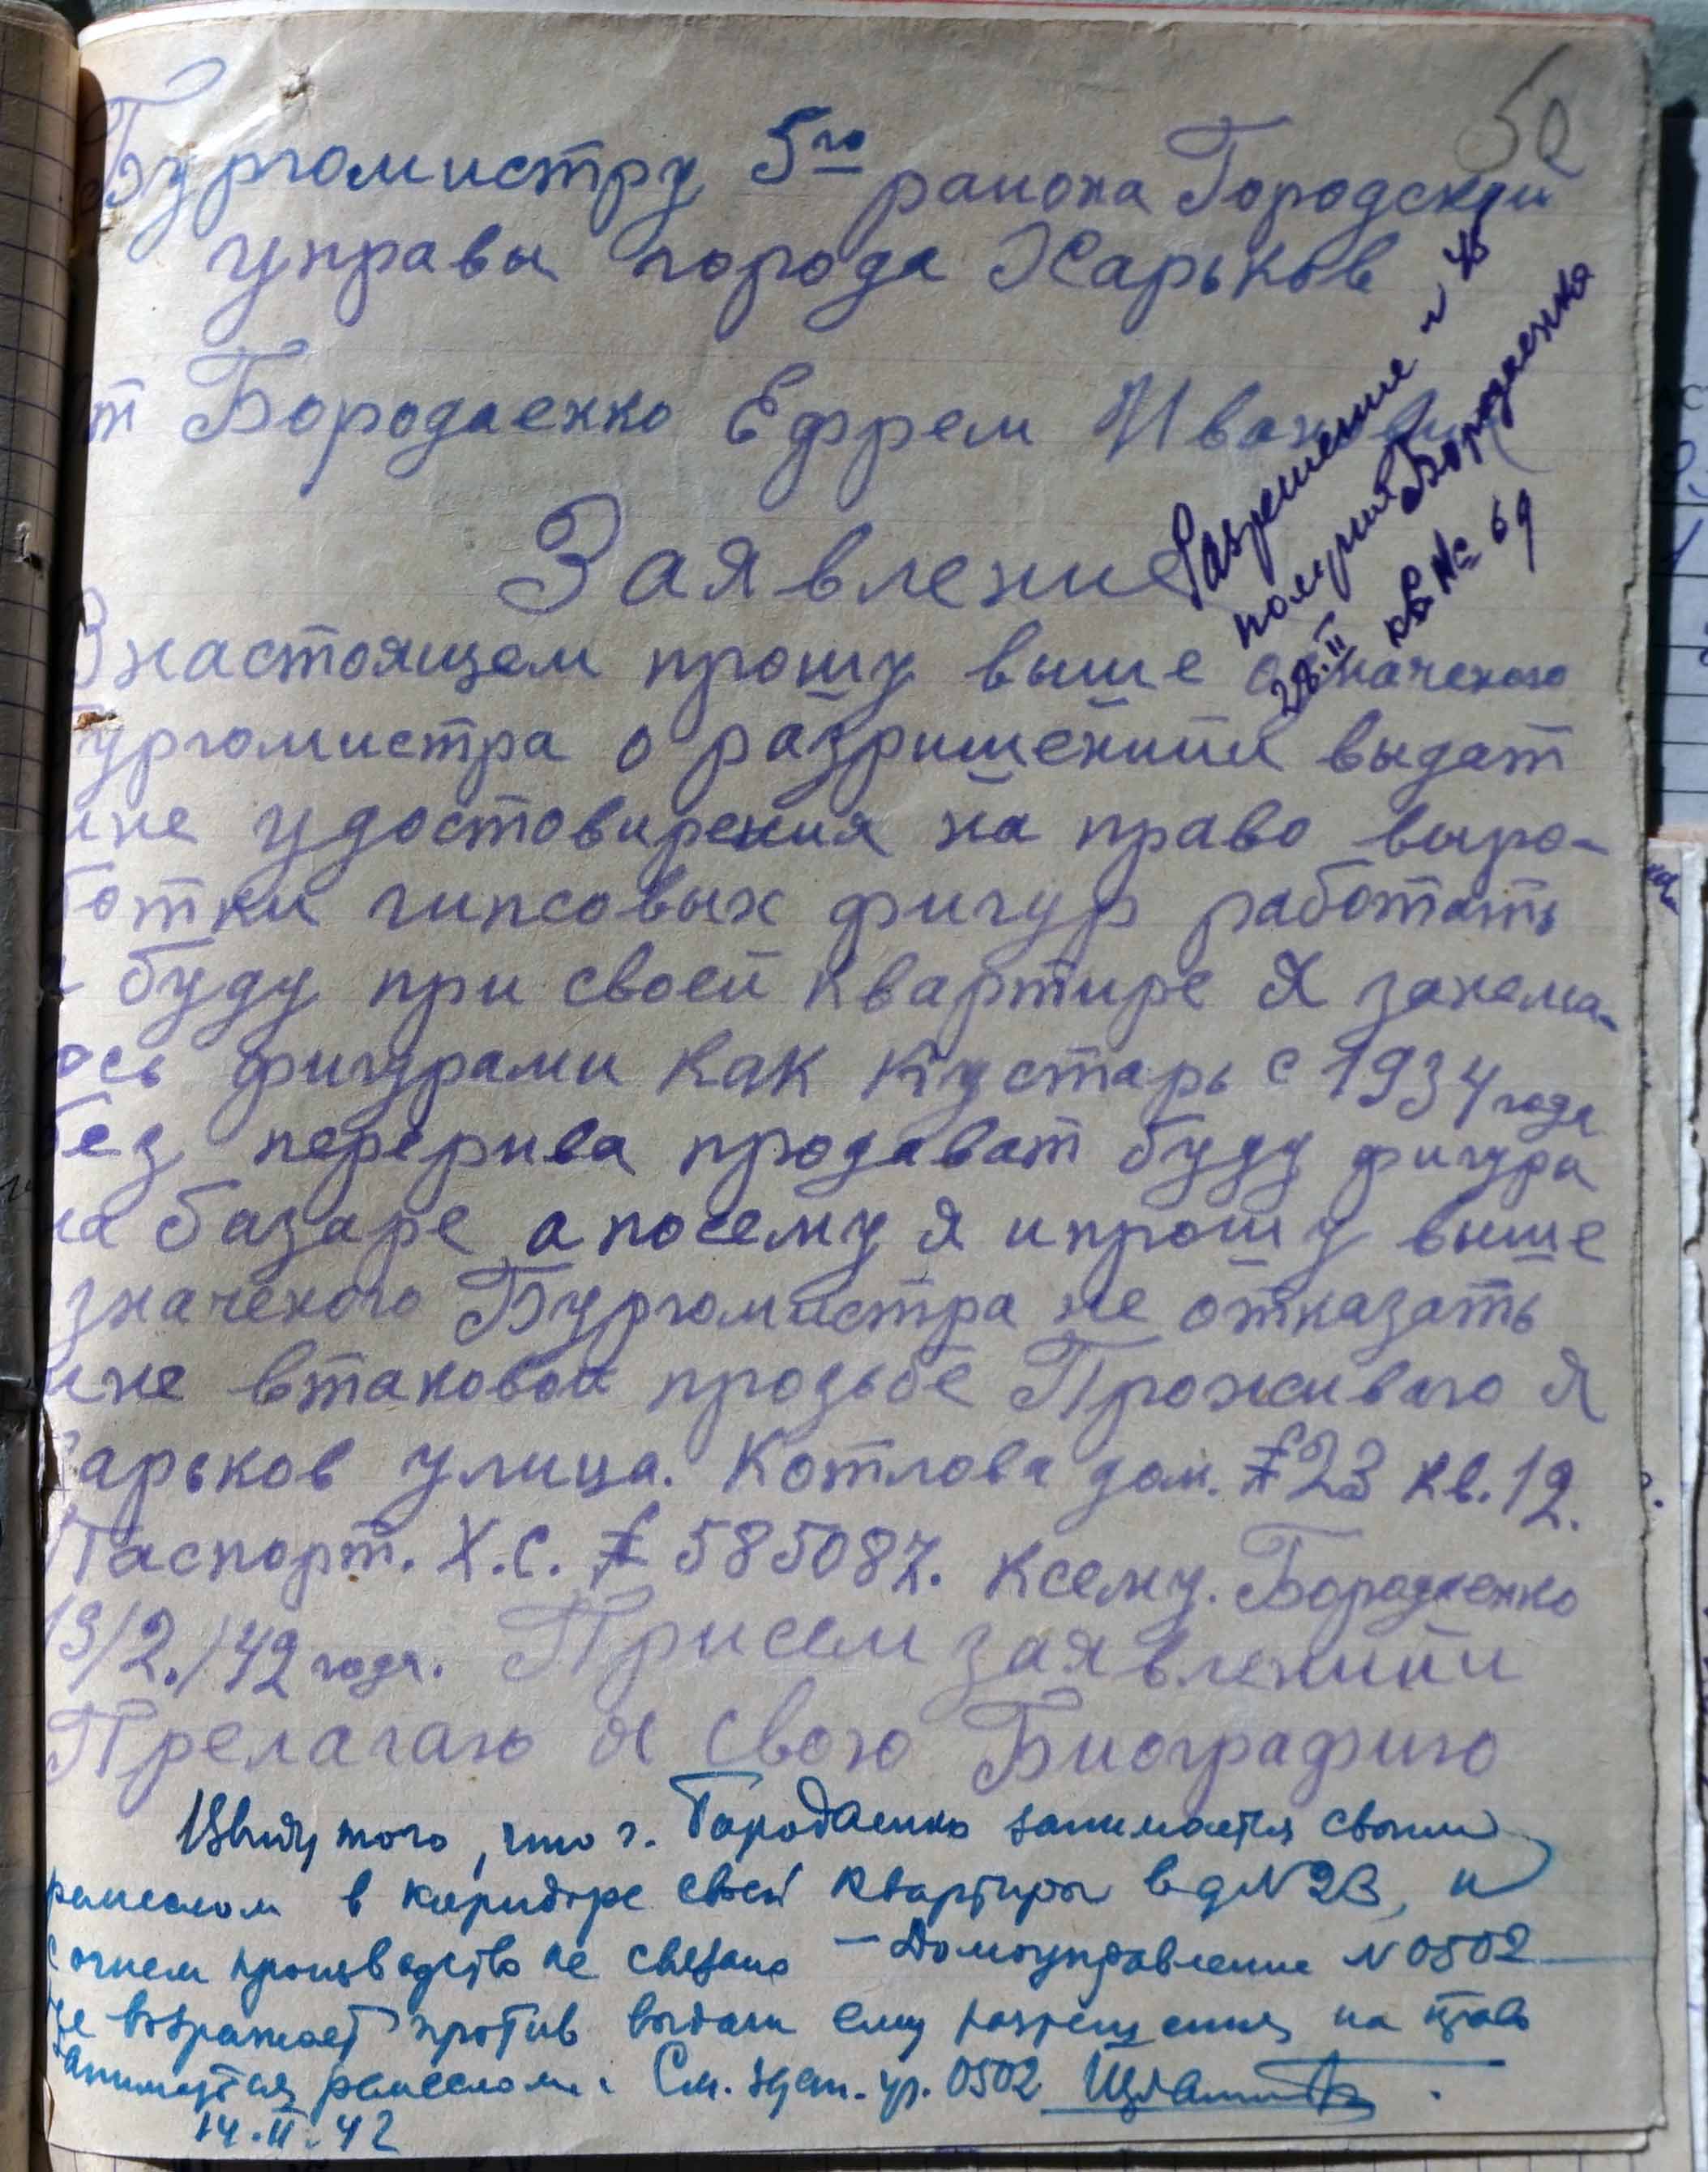 50
Бургомистру 5го раиона Городскаи
управы города Харьков
т Бородаенко Ефрем Иванович
Разрешение n 45
получил Бородаенко
28.II кв № 69
Заявление
В настоящем прошу выше означеного
ургомистра о разришениии выдат
мне удостовирения на право выро-
ботки гипсовых фигур работать
буду при своей квартире я занема-
юсь фигурами как кустарь с 1934 года
без перерыва продават буду фигуры
на базаре а посему я и прошу выше
значеного Бургомистра не отказать
мне в таковои прозьбе Проживаю я
Харьков улица. Котлова дом. № 23 кв. 12.
Паспорт. Х.С. № 585087. Ксему. Бородаенко
13/2./42 года. Присем заявлениии
Прелагаю я свою Биографию
Ввиду того, что г. Бородаенко занимается своим
ремеслом в коридоре своей квартиры в д N 23, и
с огнем производство не связано – Домоуправление N 0502
не возражает против выдачи ему разрешения на право
заниматься ремеслом. См. ур. 0502
14.II.42